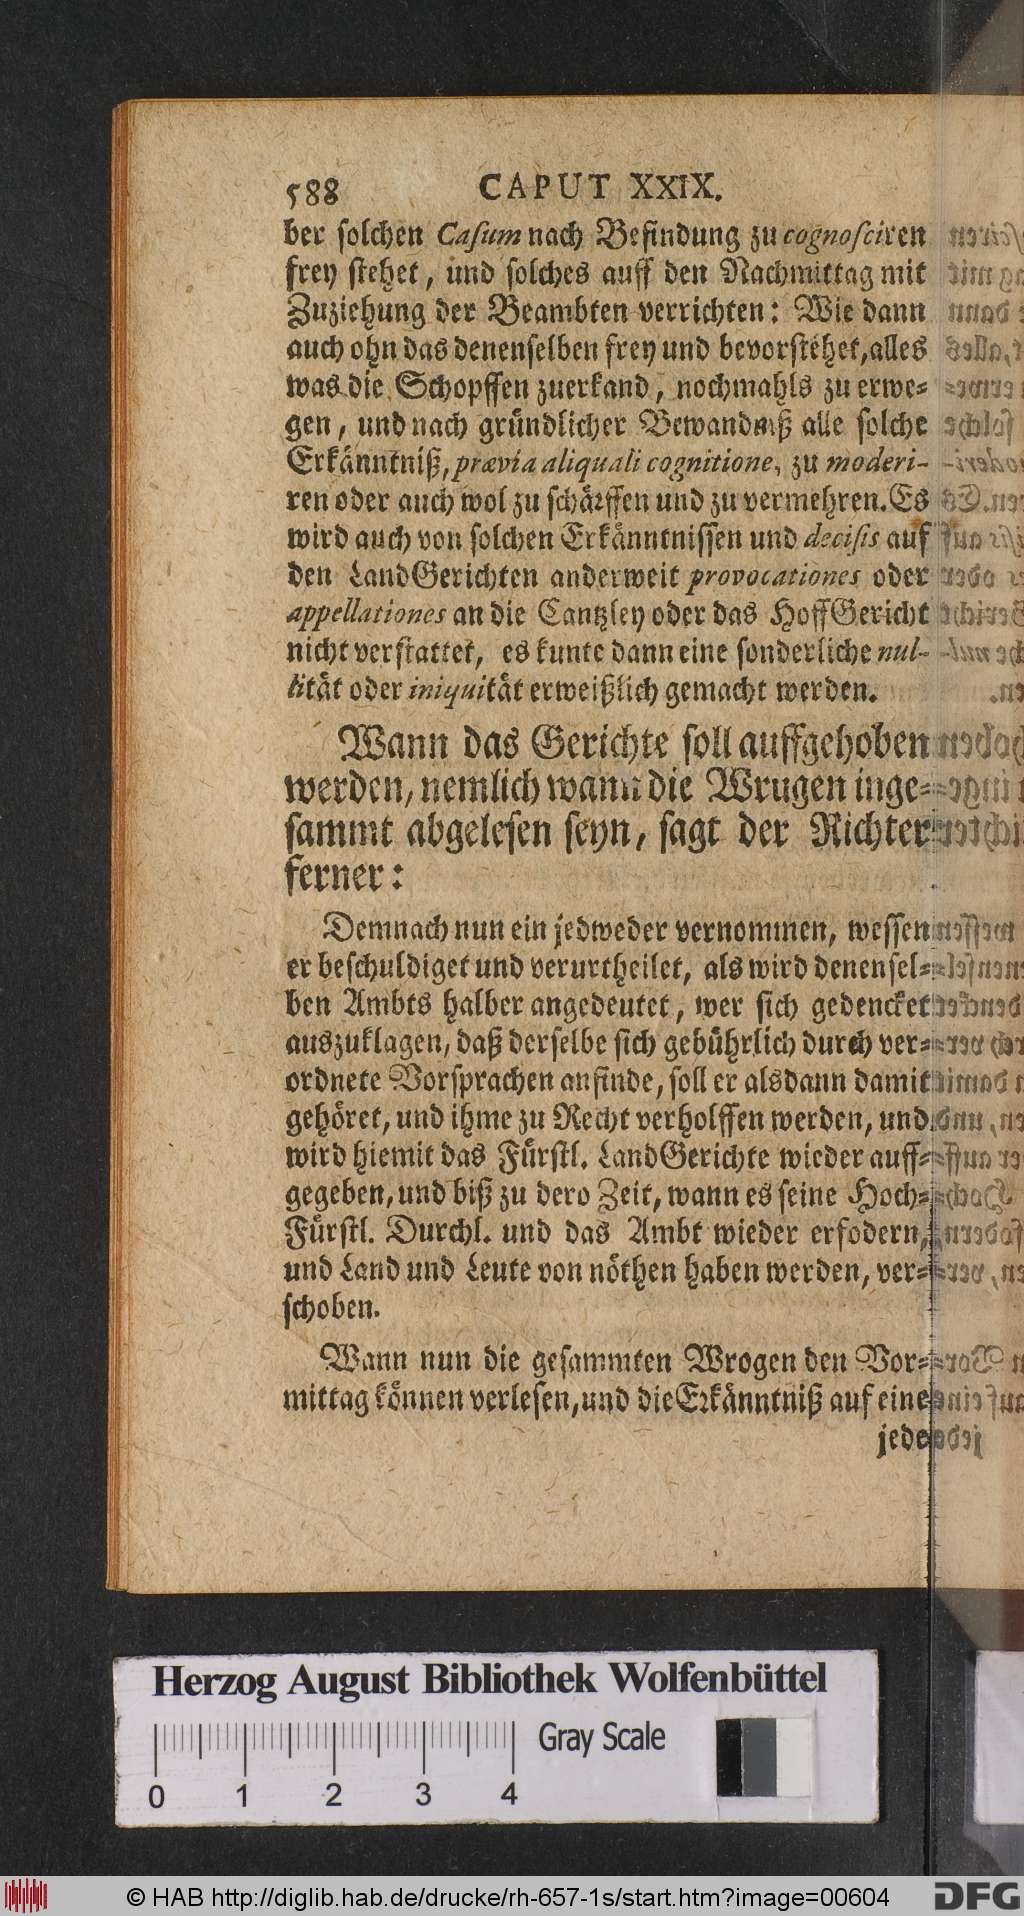 588 CAPUT XXIX.
ber solchen Casum nach Befindung zu cognosciren
frey stehet, und solches auff den Nachmittag mit
Zuziehung der Beambten verrichten: Wie dann
auch ohn das denenselben frey und bevorstehet, alles
was die Schopffen zuerkand, nochmahls zu erwe-
gen, und nach gründlicher Bewandniß alle solche
Erkänntniß, prævia aliquali cognitione, zu moderi-
ren oder auch wol zu schärffen und zu vermehren. Es
wird auch von solchen Erkänntnissen und decisis auf
den LandGerichten anderweit provocationes oder
appellationes an die Cantzley oder das HoffGericht
nicht verstattet, es kunte dann eine sonderliche nul-
lität oder iniquität erweißlich gemacht werden.
Wann das Gerichte soll auffgehoben
werden, nemlich wann die Wrugen inge-
sammt abgelesen seyn, sagt der Richter
ferner:
Demnach nun ein jedweder vernommen, wessen
er beschuldiget und verurtheilet, als wird denensel-
ben Ambts halber angedeutet, wer sich gedencket
auszuklagen, daß derselbe sich gebührlich durch ver-
ordnete Vorsprachen anfinde, soll er alsdann damit
gehöret, und ihme zu Recht verholffen werden, und
wird hiemit das Fürstl. LandGerichte wieder auff-
gegeben, und biß zu dero Zeit, wann es seine Hoch-
Fürstl. Durchl. und das Ambt wieder erfodern,
und Land und Leute von nöthen haben werden, ver-
schoben.
Wann nun die gesammten Wrogen den Vor-
mittag können verlesen, und die Erkänntniß auf eine
jede
Herzog August Bibliothek Wolfenbüttel
Gray Scale
0 1 2 3 4
© HAB http://diglib.hab.de/drucke/rh-657-1s/start.htm?image=00604
DFG